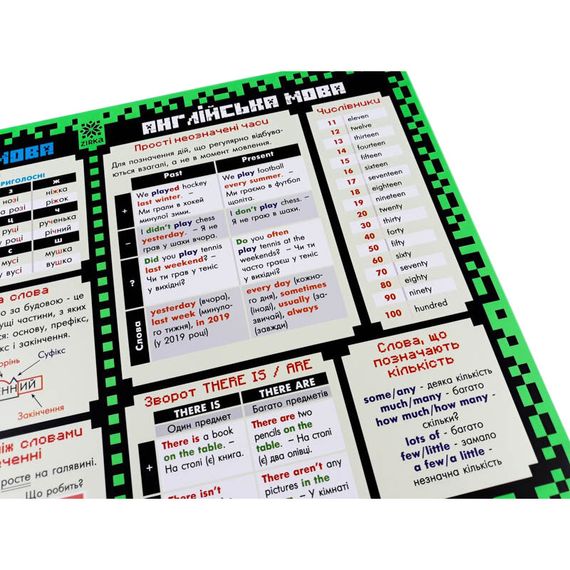 ZIRKA
МОВА
РИГОЛОСНІ
ж
ніжка
ріжок
ч
рученька
річний
ш
мушка
вушко
слова
о за будовою - це
сті: основу, префікс,
кс і закінчення.
Суфікс
Закінчення
між словами
на галявині.
Що робить?
АНГЛІЙСЬКА МОВА
Прості неозначені часи
Для позначення дій, що регулярно відбува-
ються взагалі, а не в момент мовлення.
Past
Present
+
We played hockey
last winter. –
Ми грали в хокей
минулої зими.
We play football
every summer. –
Ми граємо у футбол
щоліта.
–
I didn't play chess
yesterday. – Я не
грав у шахи вчора.
I don't play chess. –
Я не граю в шахи.
?
Did you play tennis
last weekend? –
Чи ти грав у теніс
у вихідні?
Do you often
play tennis at the
weekends? – Чи
часто граєш у теніс
у вихідні?
Слова
yesterday (вчора),
last week (минуло-
го тижня), in 2019
(у 2019 році)
every day (кожно-
го дня), sometimes
(іноді), usually (за-
звичай), always
(завжди)
Числівники
11 eleven
12 twelve
13 thirteen
14 fourteen
15 fifteen
16 sixteen
17 seventeen
18 eighteen
19 nineteen
20 twenty
30 thirty
40 forty
50 fifty
60 sixty
70 seventy
80 eighty
90 ninety
100 hundred
Зворот THERE IS / ARE
THERE IS
THERE ARE
Один предмет
Багато предметів
+
There is a book
on the table. –
На столі (є) книга.
There are two
pencils on the
table. – На столі
(є) два олівці.
There isn't
There aren't any
pictures in the
. – у кімнаті
Слова, що
позначають
кількість
some/any - деяка кількість
much/many - багато
how much/how many -
скільки?
lots of - багато
few/little - замало
a few/a little -
незначна кількість